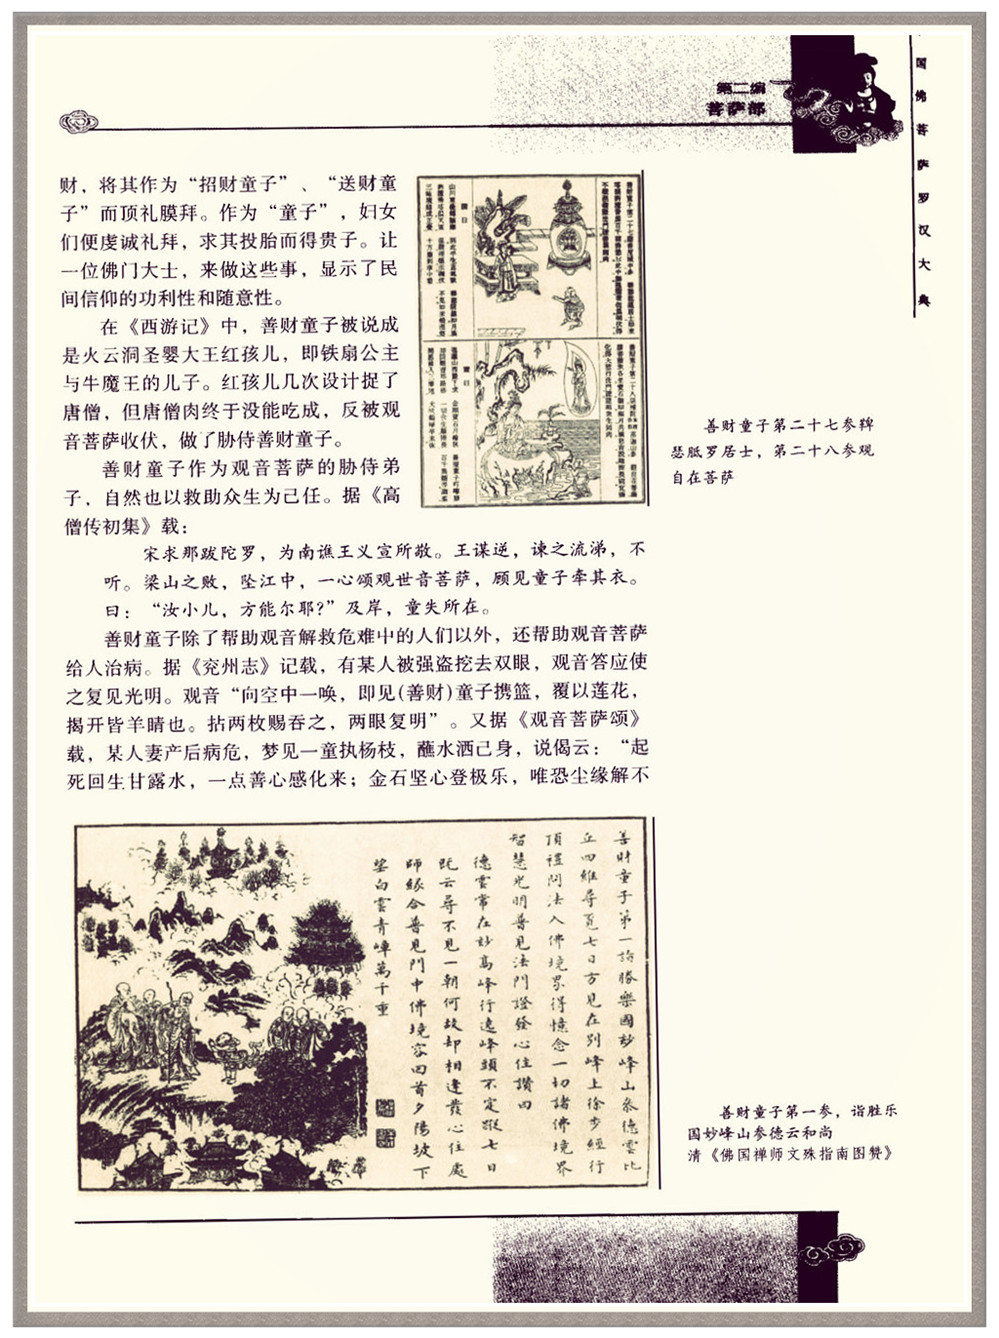 第二编
菩萨部
国佛菩萨罗汉大典
财，将其作为“招财童子”、“送财童
子”而顶礼膜拜。作为“童子”，妇女
们便虔诚礼拜，求其投胎而得贵子。让
一位佛门大士，来做这些事，显示了民
间信仰的功利性和随意性。
在《西游记》中，善财童子被说成
是火云洞圣婴大王红孩儿，即铁扇公主
与牛魔王的儿子。红孩儿几次设计捉了
唐僧，但唐僧肉终于没能吃成，反被观
音菩萨收伏，做了胁侍善财童子。
善财童子作为观音菩萨的胁侍弟
子，自然也以救助众生为己任。据《高
僧传初集》载：
善财童子第二十七参鞞
瑟胝罗居士，第二十八参观
自在菩萨
宋求那跋陀罗，为南谯王义宣所敬。王谋逆，谏之流涕，不
听。梁山之败，坠江中，一心颂观世音菩萨，顾见童子牵其衣。
曰：“汝小儿，方能尔耶?”及岸，童失所在。
善财童子除了帮助观音解救危难中的人们以外，还帮助观音菩萨
给人治病。据《兖州志》记载，有某人被强盗挖去双眼，观音答应使
之复见光明。观音“向空中一唤，即见(善财)童子携篮，覆以莲花，
揭开皆羊睛也。拈两枚赐吞之，两眼复明”。又据《观音菩萨颂》
载，某人妻产后病危，梦见一童执杨枝，蘸水洒己身，说偈云：“起
死回生甘露水，一点善心感化来；金石坚心登极乐，唯恐尘缘解不
善財童子第一詣勝樂國妙峰山參德雲比
丘四維尋覓七日方見在别峰上徐步經行
頂禮問法入佛境界得憶念一切諸佛境界
智慧光明普見法門證發心住讚曰
德雲常在妙高峰行遶峰頭不定蹤七日
既云尋不見一朝何故却相逢發心住處
師緣合普見門中佛境容回首夕陽坡下
望白雲青嶂萬千重
善财童子第一参，诣胜乐
国妙峰山参德云和尚
清《佛国禅师文殊指南图赞》